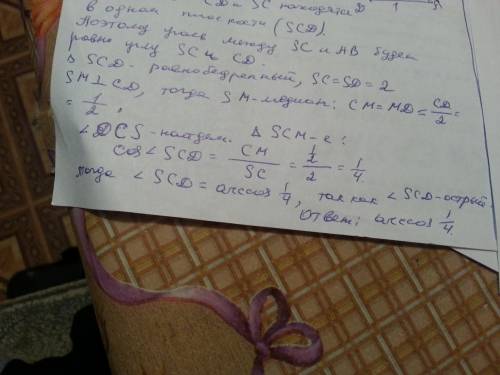 CD и SC находятся D 1
в одной плоскости (SCD).
Поэтому угол между SC и AB будет
равен углу SC и CD.
Δ SCD - равнобедренный, SC=SD=2
SM⊥CD, тогда SM-медиан: CM=MD=CD/2=
=1/2,
∠DCS-найдем. Δ SCM-е:
cos∠SCD = CM/SC = 1/2/2 = 1/4
тогда ∠SCD = arccos 1/4, так как ∠SCD-острый
Ответ: arccos 1/4.